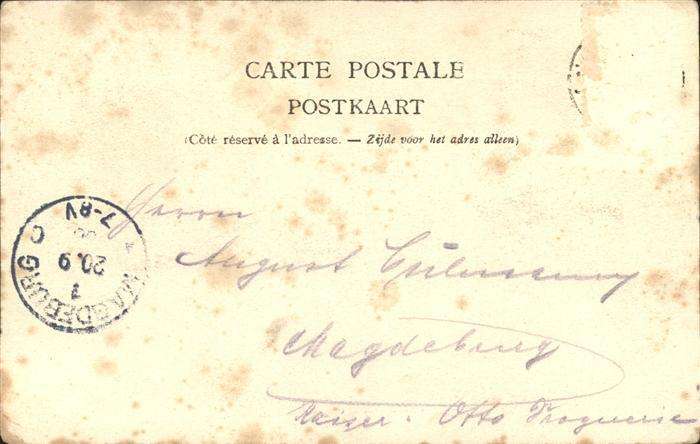 CARTE POSTALE
POSTKAART
(Côté réservé à l'adresse. — Zijde voor het adres alleen)
Herrn
August
Magdeburg
Kaiser-Otto Droguerie
MAGDEBURG
1
20.9
7-8V
C